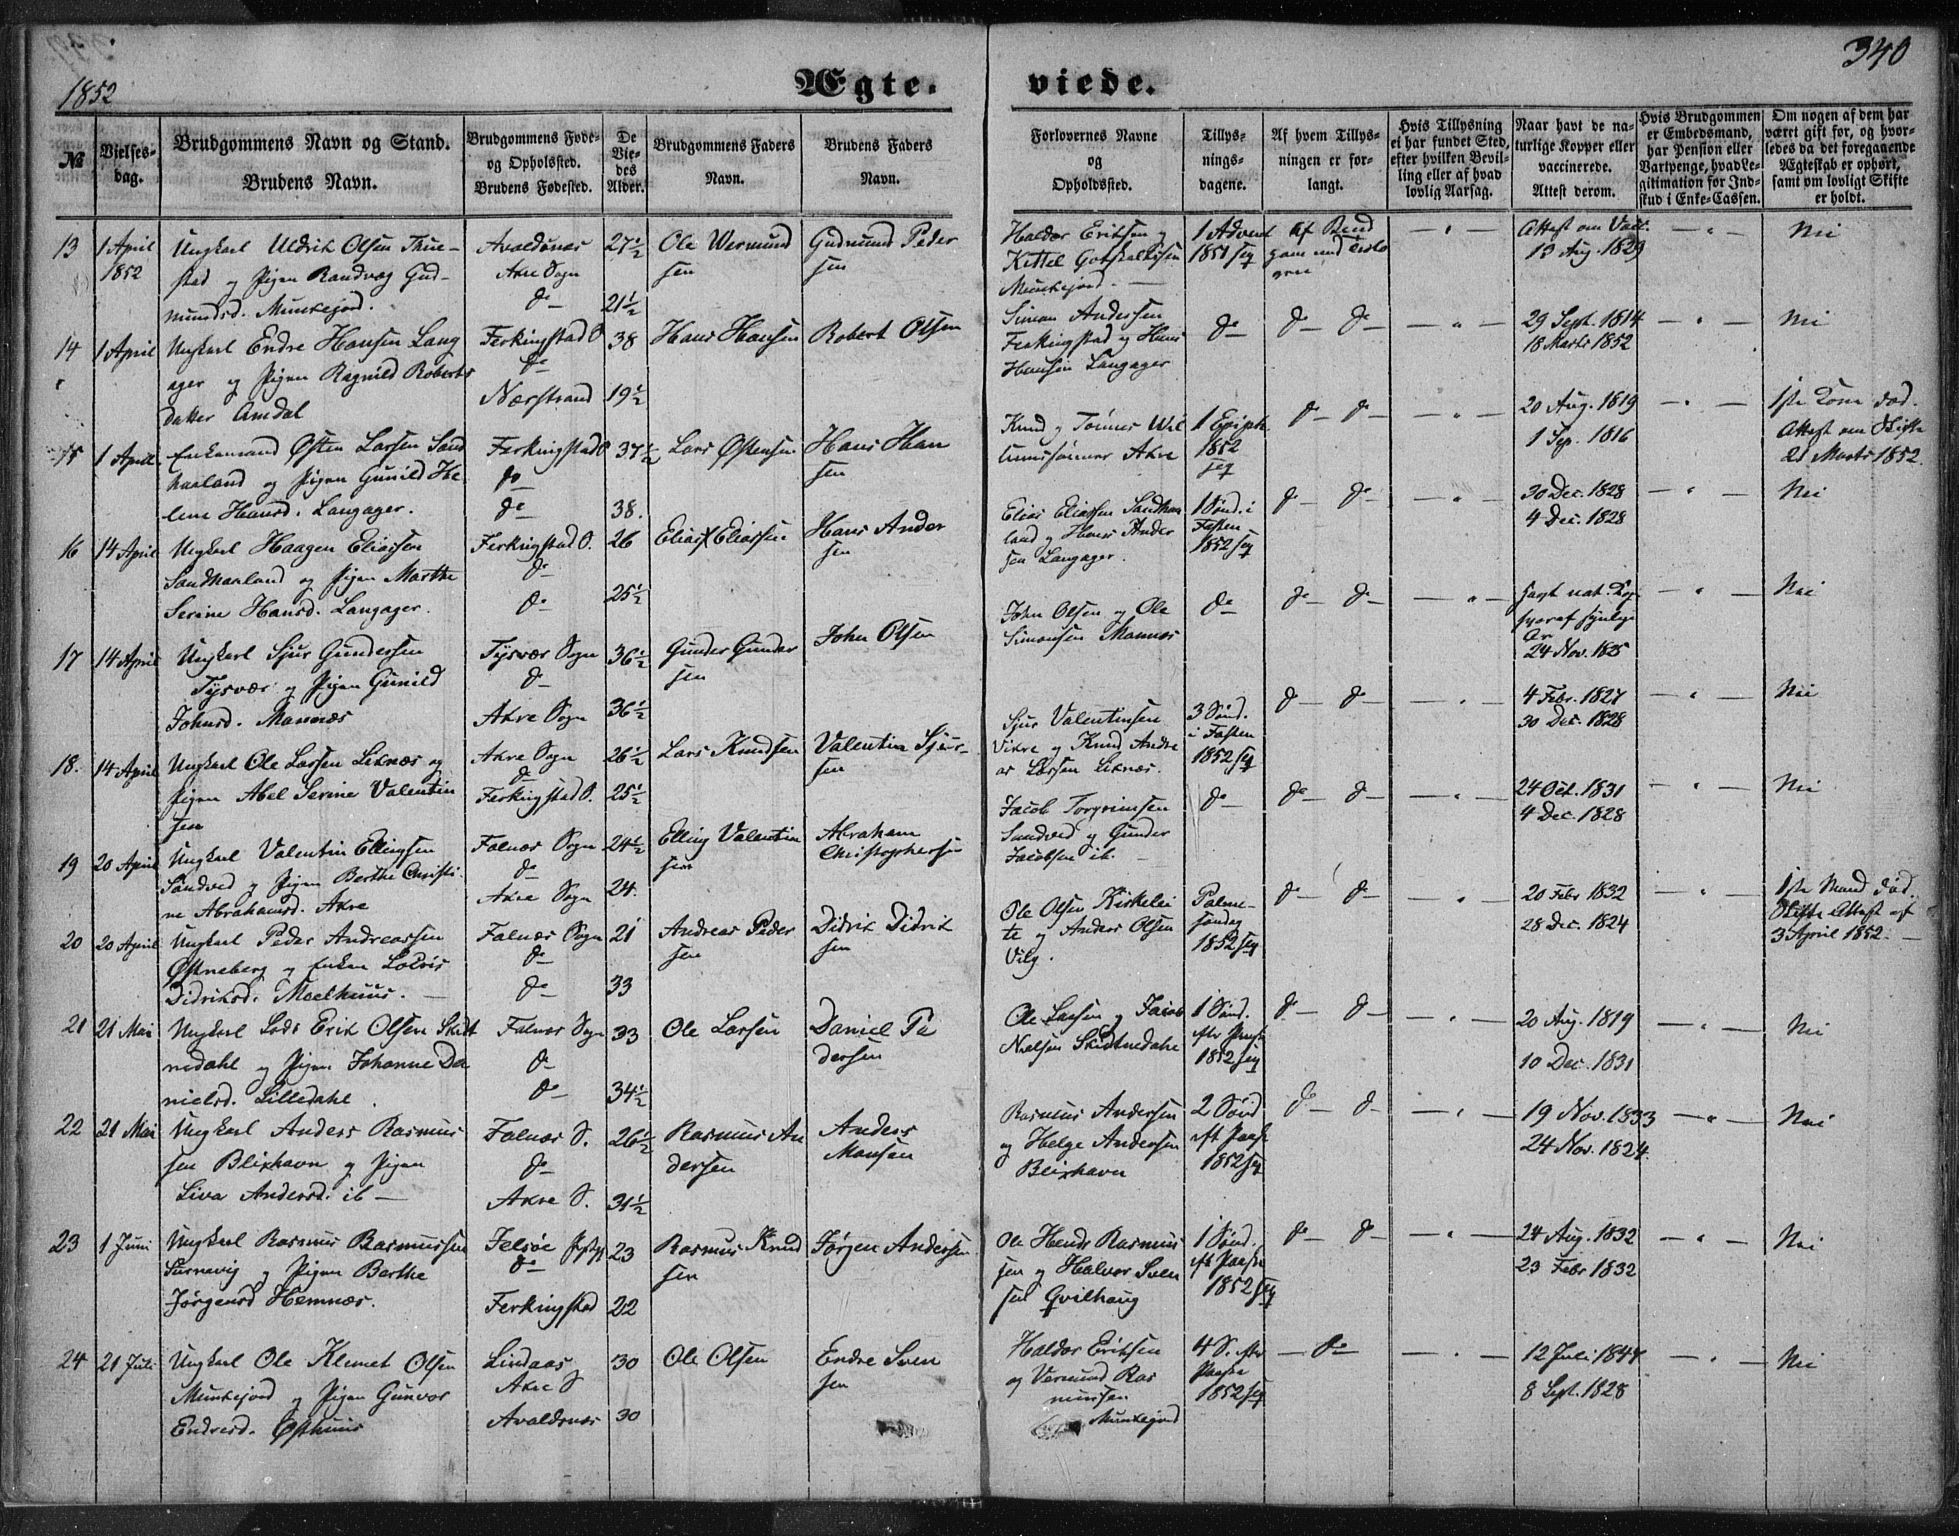 1852
Ægte-
viede.
340
No
Vielses-
dag.
Brudgommens Navn og Stand.
Brudens Navn.
Brudgommens Føde-
og Opholdsted.
Brudens Fødested.
De
Vie-
des
Alder.
Brudgommens Faders
Navn.
Brudens Faders
Navn.
Forlovernes Navne
og
Opholdssted.
Tillys-
nings-
dagene.
Af hvem Tillys-
ningen er for-
langt.
Hvis Tillysning
ei har fundet Sted,
efter hvilken Bevil-
ling eller af hvad
lovlig Aarsag.
Naar havt de na-
turlige Kopper eller
vaccinerede.
Attest derom.
Hvis Brudgommen
er Embedsmand,
har Pension eller
Vartpenge, hvad Le-
gitimation for Ind-
skud i Enke-Cassen.
Om nogen af dem har
været gift før, og hvor-
ledes da det foregaaende
Ægteskab er ophørt,
samt om lovligt Skifte
er holdt.
13
1 April
1852
Ungkarl Uldrik Olsen Thue-
stad og Pigen Randvæg Gud-
mundsd. Munkejord.
Avaldsnæs
Akre Sogn
do
27½
21½
Ole Wermund
sen
Gudmund Peder
sen
Haldor Eriksen og
Kittel Gotskalksen
Munkejord.
1 Advent
1851 seq
Af Brud
gommen
Attest om Vacc.
13 Aug. 1829
Nei
14
1 April
Ungkarl Endre Hansen Lang
ager og Pigen Ragnild Roberts
datter Amdal
Ferkingstad S
do
Nærstrand
38
19½
Hans Hansen
Robert Olsen
Simon Andersen
Ferkingstad og Hans
Hansen Langager
do
do do
29 Sept. 1814
18 Marts 1852
Nei
15
1 April
Enkemand Østen Larsen Sand
haaland og Pigen Gunild He-
lene Hansd. Langager.
Ferkingstad S
do
do
37½
38.
Lars Østensen
Hans Han
sen
Knud og Tønnes Wil
lumsønner Akre
1 Epiph.
1852
seq
do do
20 Aug. 1819
1 Sep. 1816
1ste Kone død.
Attest om Skifte
21 Marts 1852.
16
14 April
Ungkarl Haagen Eliassen
Sandhaaland og Pigen Marthe
Serine Hansd. Langager.
Ferkingstad S.
do
do
26
25½
Elias Eliassen
Hans Ander
sen
Elias Eliassen Sandhaa
land og Hans Ander
sen Langager.
1 Sønd. i
Fasten
1852 seq
do do
30 Dec. 1828
4 Dec. 1828
Nei
17
14 April
Ungkarl Sjur Gundersen
Tysvær og Pigen Gunild
Johnsd. Mannæs
Tysvær Sogn
do
Akre Sogn
36½
36½
Gunder Gunder
sen
John Olsen
John Olsen og Ole
Simonsen Mannæs
do
do do
havt nat. Kop
hvoraf synlige
Ar
24 Nov. 1825
Nei
18.
14 April
Ungkarl Ole Larsen Liknæs og
Pigen Abel Serine Valentin
sen
Akre Sogn
do
Ferkingstad S.
26½
25½
Lars Knudsen
Valentin Sjur-
sen
Sjur Valentinsen
Vikre og Knud Andre
as Larsen Liknæs.
3 Sønd.
i Fasten
1852 seq
do do
4 Febr. 1827
30 Dec. 1828
Nei
19
20 April
Ungkarl Valentin Ellingsen
Sandved og Pigen Berthe Christi-
ne Abrahamsd. Akre
Falnæs Sogn
do
Akre Sogn
24½
24.
Elling Valentin
sen
Abraham
Christophersen
Jacob Torgrimsen
Sandved og Gunder
Jacobsen ib.
do
do do
24 Oct. 1831
4 Dec. 1828
Nei
20
20 April
Ungkarl Peder Andreassen
Østneberg og Enken Lovis
Didriksd. Moelhuus.
Falnæs Sogn
do
do
21
33
Andreas Peder
sen
Didrik Didrik
sen
Ole Olsen Kirkelei
te og Anders Olsen
Vilg.
Palme-
søndag
1852 seq
do do
20 Febr 1832
28 Dec. 1824
1ste Mand død
Skifte Attest af
3 April 1852.
21
21 Mai
Ungkarl Lods Erik Olsen Skidt
nedahl og Pigen Johanne Da
nielsd. Lilledahl.
Falnæs Sogn
do
do
33
34½
Ole Larsen
Daniel Pe
dersen
Ole Larsen og Jacob
Nielsen Skidtnedahl
1 Sønd.
eftr Paaske
1852 seq
do do
20 Aug. 1819
10 Dec. 1831
Nei
22
21 Mai
Ungkarl Anders Rasmus
sen Blixhavn og Pigen
Siva Andersd. ib
Falnæs S.
do
Akre S.
26½
31½
Rasmus An
dersen
Anders
Monsen
Rasmus Andersen
og Helge Andersen
Blixhavn
2 Sønd
eft Paaske
1852 seq
do do
19 Nov. 1833
24 Nov. 1824.
Nei
23
1 Juni
Ungkarl Rasmus Rasmussen
Surnevig og Pigen Berthe
Jørgensd Hemnæs.
Felsøe
do
Ferkingstad
23
22
Rasmus Knud
sen
Jørgen Andersen
Ole Hendr Rasmus
sen og Halvor Sven
sen Qvilhaug
1 Sønd.
eft Paaske
1852 seq
do do
24 Aug. 1832
23 Febr 1832
Nei
24
21 Juli
Ungkarl Ole Klemet Olsen
Munkejord og Pigen Gunvor
Endresd. Østhuus
Lindaas
Akre S
Avaldsnæs
30
30
Ole Olsen
Endre Sven
sen
Haldor Eriksen
og Vermund Ras
mussen
Munkejord
4 S. eftr
Paaske
1852 seq
do
12 Juli 1847
8 Sept. 1828
Nei